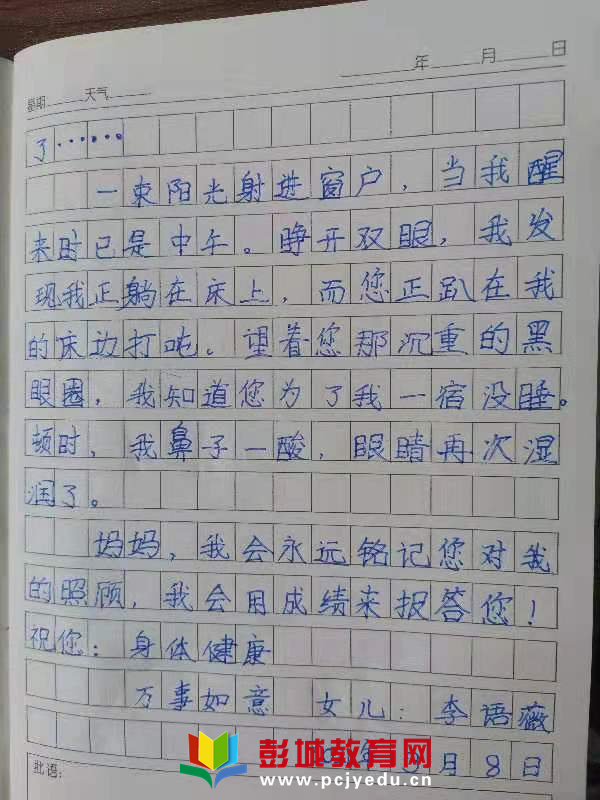 星期 天气 年 月 日
了……。
一束阳光射进窗户，当我醒
来时已是中午。睁开双眼，我发
现我正躺在床上，而您正趴在我
的床边打吨。望着您那沉重的黑
眼圈，我知道您为了我一宿没睡。
顿时，我鼻子一酸，眼睛再次湿
润了。
妈妈，我会永远铭记您对我
的照顾，我会用成绩来报答您！
祝您：身体健康
万事如意 女儿：李语薇
年 月8日
批语：
彭城教育网
www.pcjyedu.cn